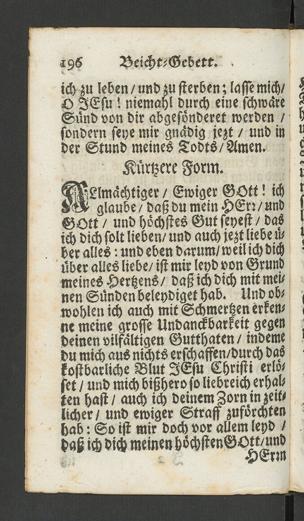 196 Beicht-Gebett.
ich zu leben/ und zu sterben; lasse mich/
O JEsu! niemahl durch eine schwäre
Sünd von dir abgesönderet werden/
sondern seye mir gnädig jezt/ und in
der Stund meines Todts/ Amen.
Kürtzere Form.
ALlmächtiger/ Ewiger GOtt! ich
glaube/ daß du mein HErr/ und
GOtt/ und höchstes Gut seyest/ das
ich dich solt lieben/ und auch jezt liebe ü-
ber alles: und eben darum/ weil ich dich
über alles liebe/ ist mir leyd von Grund
meines Hertzens/ daß ich dich mit mei-
nen Sünden beleydiget hab. Und ob-
wohlen ich auch mit Schmertzen erken-
ne meine grosse Undanckbarkeit gegen
deinen vilfältigen Gutthaten/ indeme
du mich aus nichts erschaffen/ durch das
kostbarliche Blut JEsu Christi erlö-
set/ und mich bißhero so liebreich erhal-
ten hast/ auch ich deinem Zorn in zeit-
licher/ und ewiger Straff zuförchten
hab: So ist mir doch vor allem leyd/
daß ich dich meinen höchsten GOtt/ und
HErrn